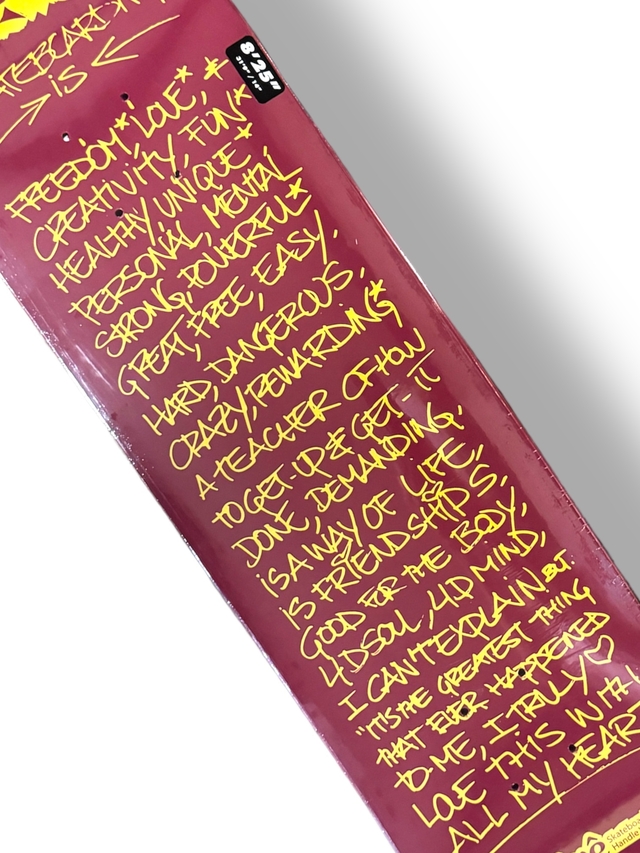 SKATEBOARDING
is
8"25"
31"9" / 14"
FREEDOM* LOVE, *
CREATIVITY, FUN*
HEALTHY, UNIQUE *
PERSONAL, MENTAL,
STRONG, POWERFUL*
GREAT, FREE, EASY,
HARD, DANGEROUS,
CRAZY, REWARDING*
A TEACHER OF HOW
TO GET-UP & GET-IT
DONE, DEMANDING,
iS A WAY OF LIFE,
iS FRIENDSHIPS,
GOOD FOR THE BODY,
4D SOUL, 4D MIND,
I CAN'T EXPLAIN BUT
"ITS THE GREATEST THING
THAT EVER HAPPENED
TO-ME, I TRULY ♡
LOVE THIS WITH
ALL MY HEAR
Skateboa
Handle